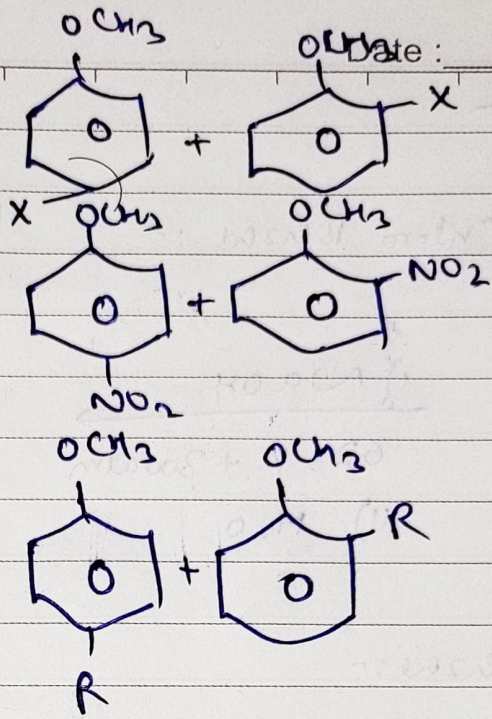 OCH3
OCH3 Date :
+ X
X
OCH3 OCH3
+ NO2
NO2
OCH3 OCH3
+ R
R